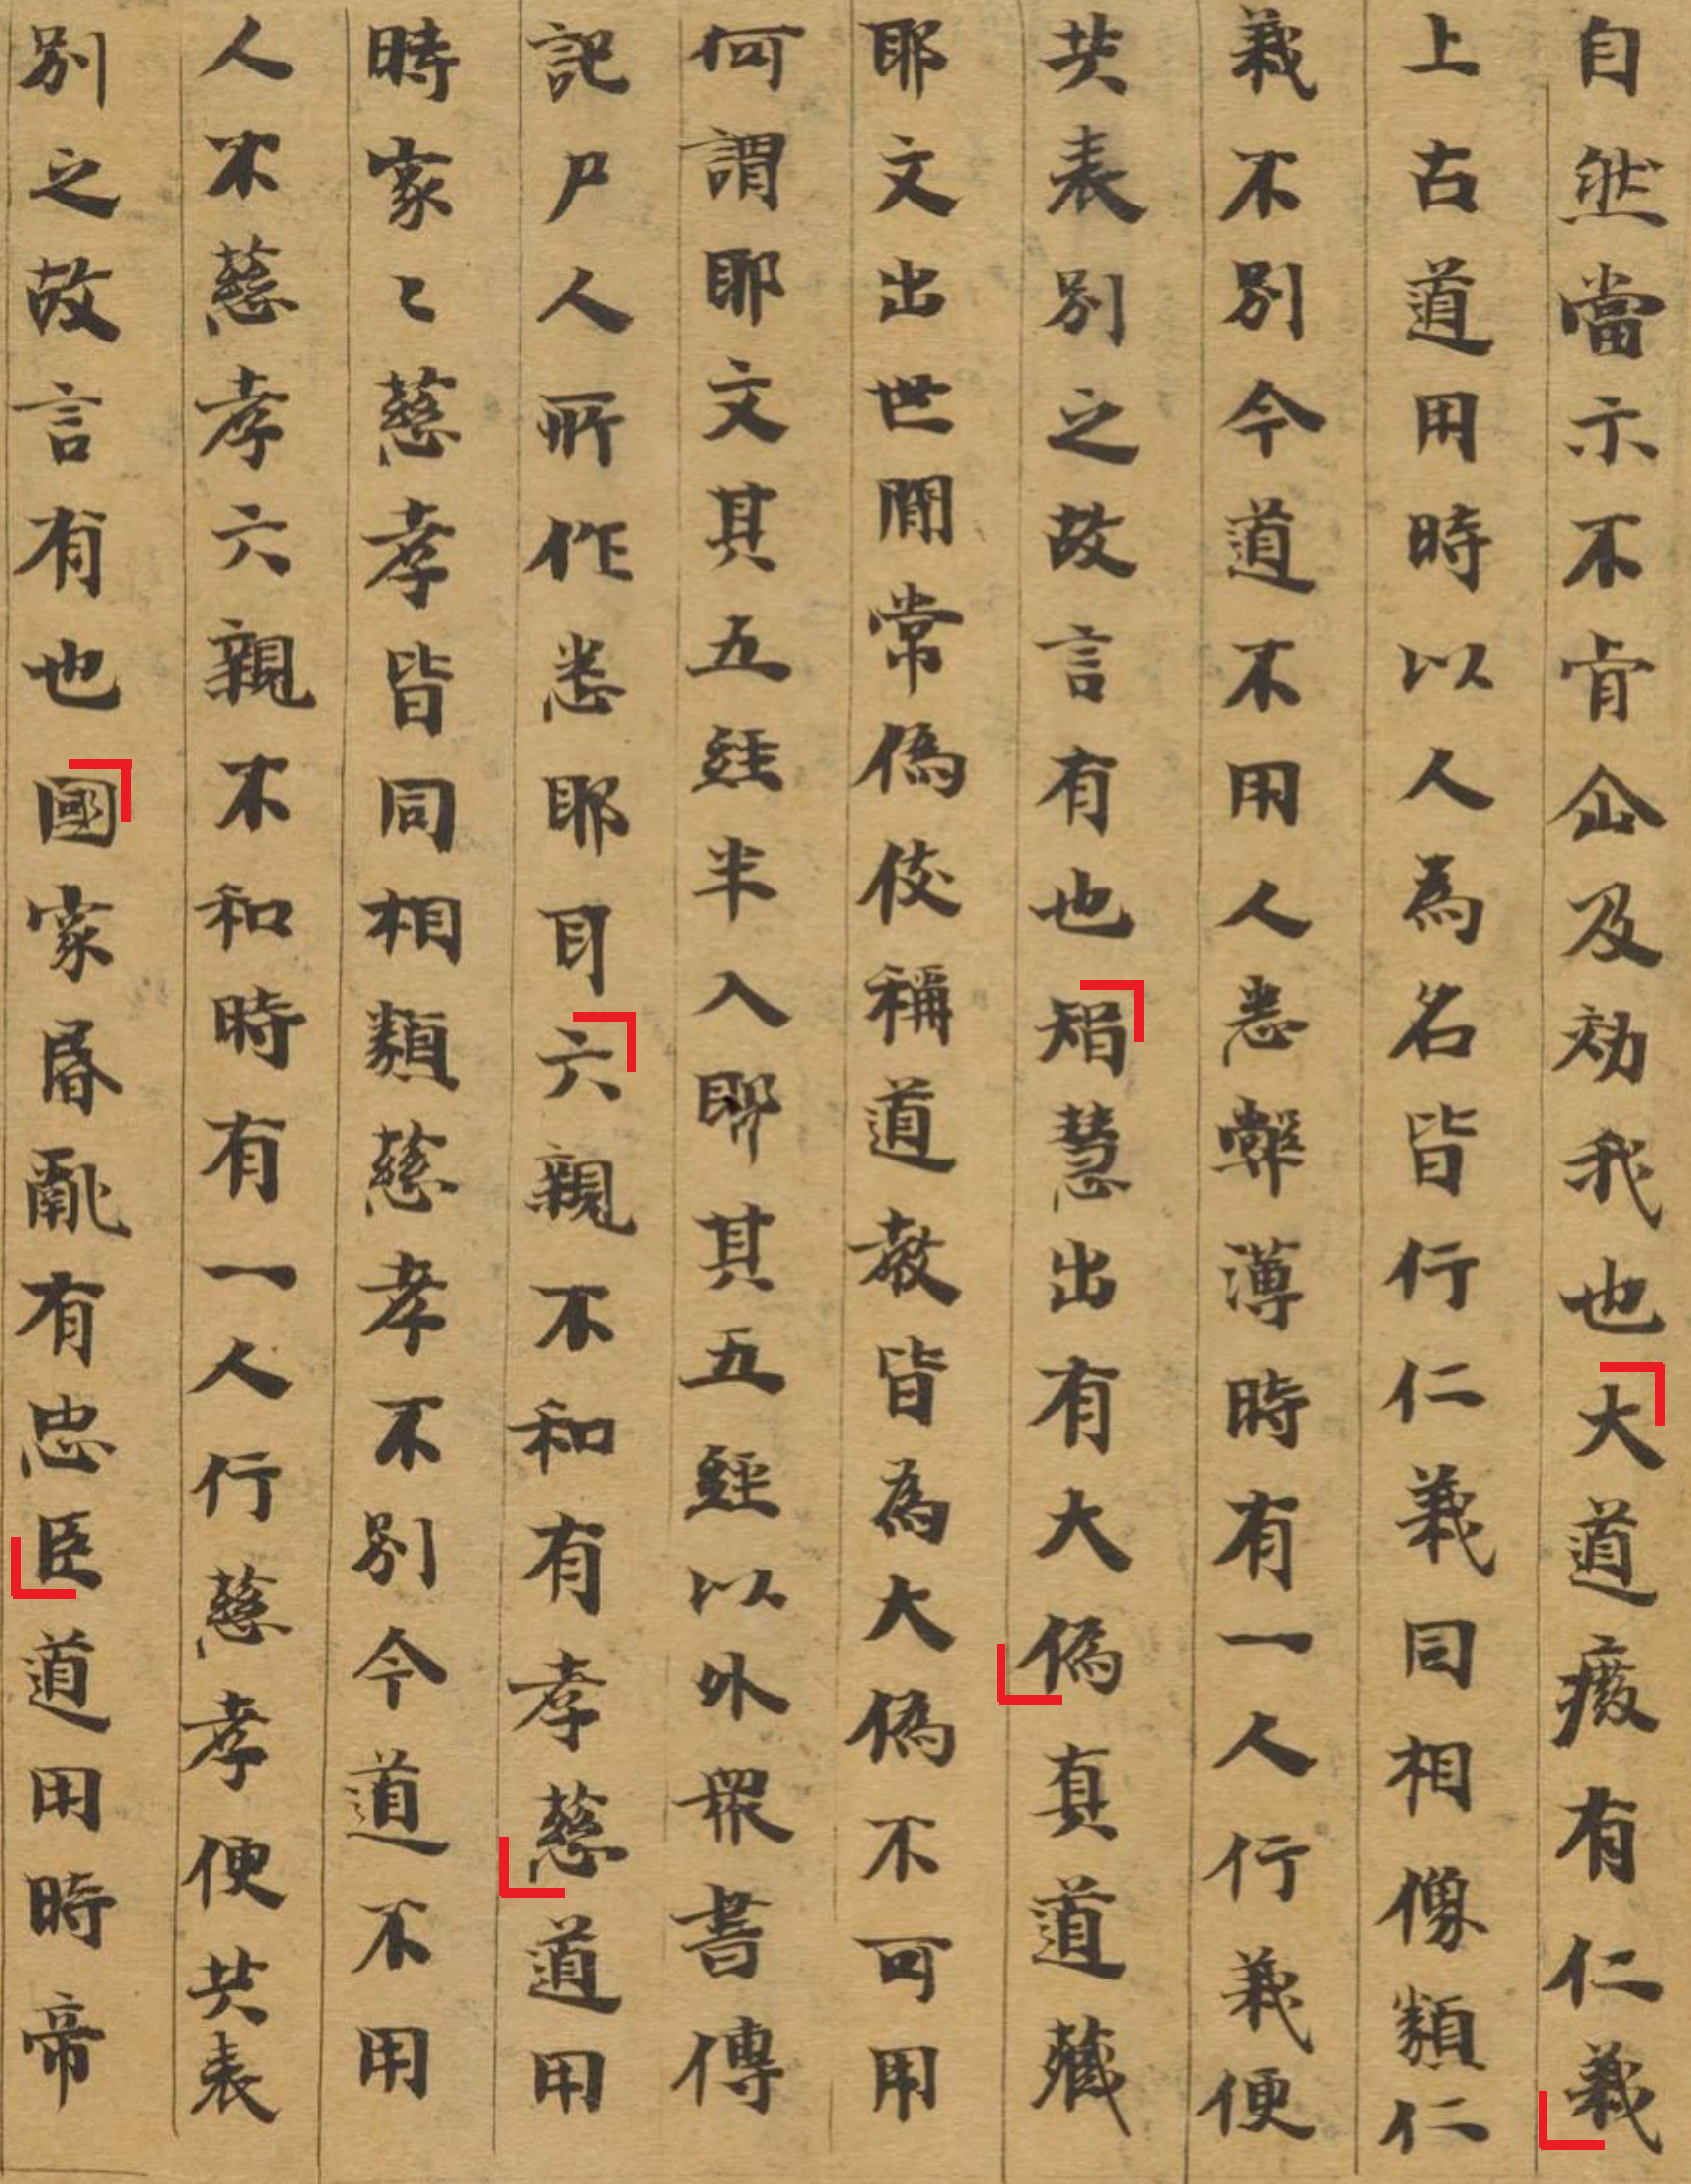 自然當示不肯企及効我也大道癈有仁義
上古道用時以人為名皆行仁義同相像類仁
義不別今道不用人悉弊薄時有一人行義便
共表別之故言有也智慧出有大偽真道藏
耶文出世間常偽伎稱道教皆為大偽不可用
何謂耶文其五經半入耶其五經以外衆書傳
記尸人所作悉耶耳六親不和有孝慈道用
時家〻慈孝皆同相類慈孝不別今道不用
人不慈孝六親不和時有一人行慈孝便共表
別之故言有也國家昏亂有忠臣道用時帝